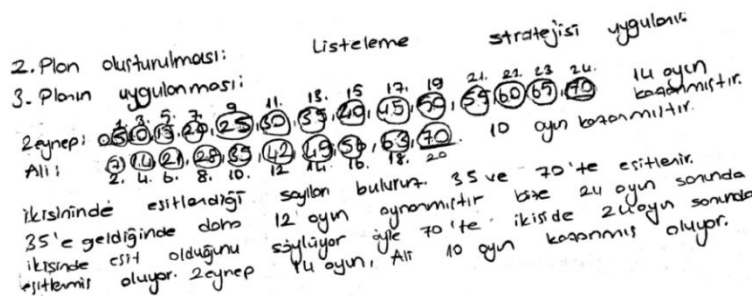 2. Plan oluşturulması: Listeleme stratejisi uygulanır.
3. Planın uygulanması:
1. 3. 5. 7. 9 11. 13. 15 17. 19 21. 22. 23 24.
Zeynep: 0 5 10 15 20, 25, 30, 35, 40, 45, 50, 55, 60 65, 70 14 oyun kazanmıştır.
Ali: 7, 14, 21, 28, 35, 42, 49, 56, 63, 70. 10 oyun kazanmıştır.
2. 4. 6. 8. 10. 12 14. 16. 18. 20
ikisininde eşitlendiği sayıları buluruz. 35 ve 70'te eşitlenir.
35'e geldiğinde daha 12 oyun oynanmıştır bize 24 oyun sonunda
ikisinde eşit olduğunu söylüyor öyle 70'te ikiside 24 oyun sonunda
eşitlemiş oluyor. Zeynep 14 oyun, Ali 10 oyun kazanmış oluyor.